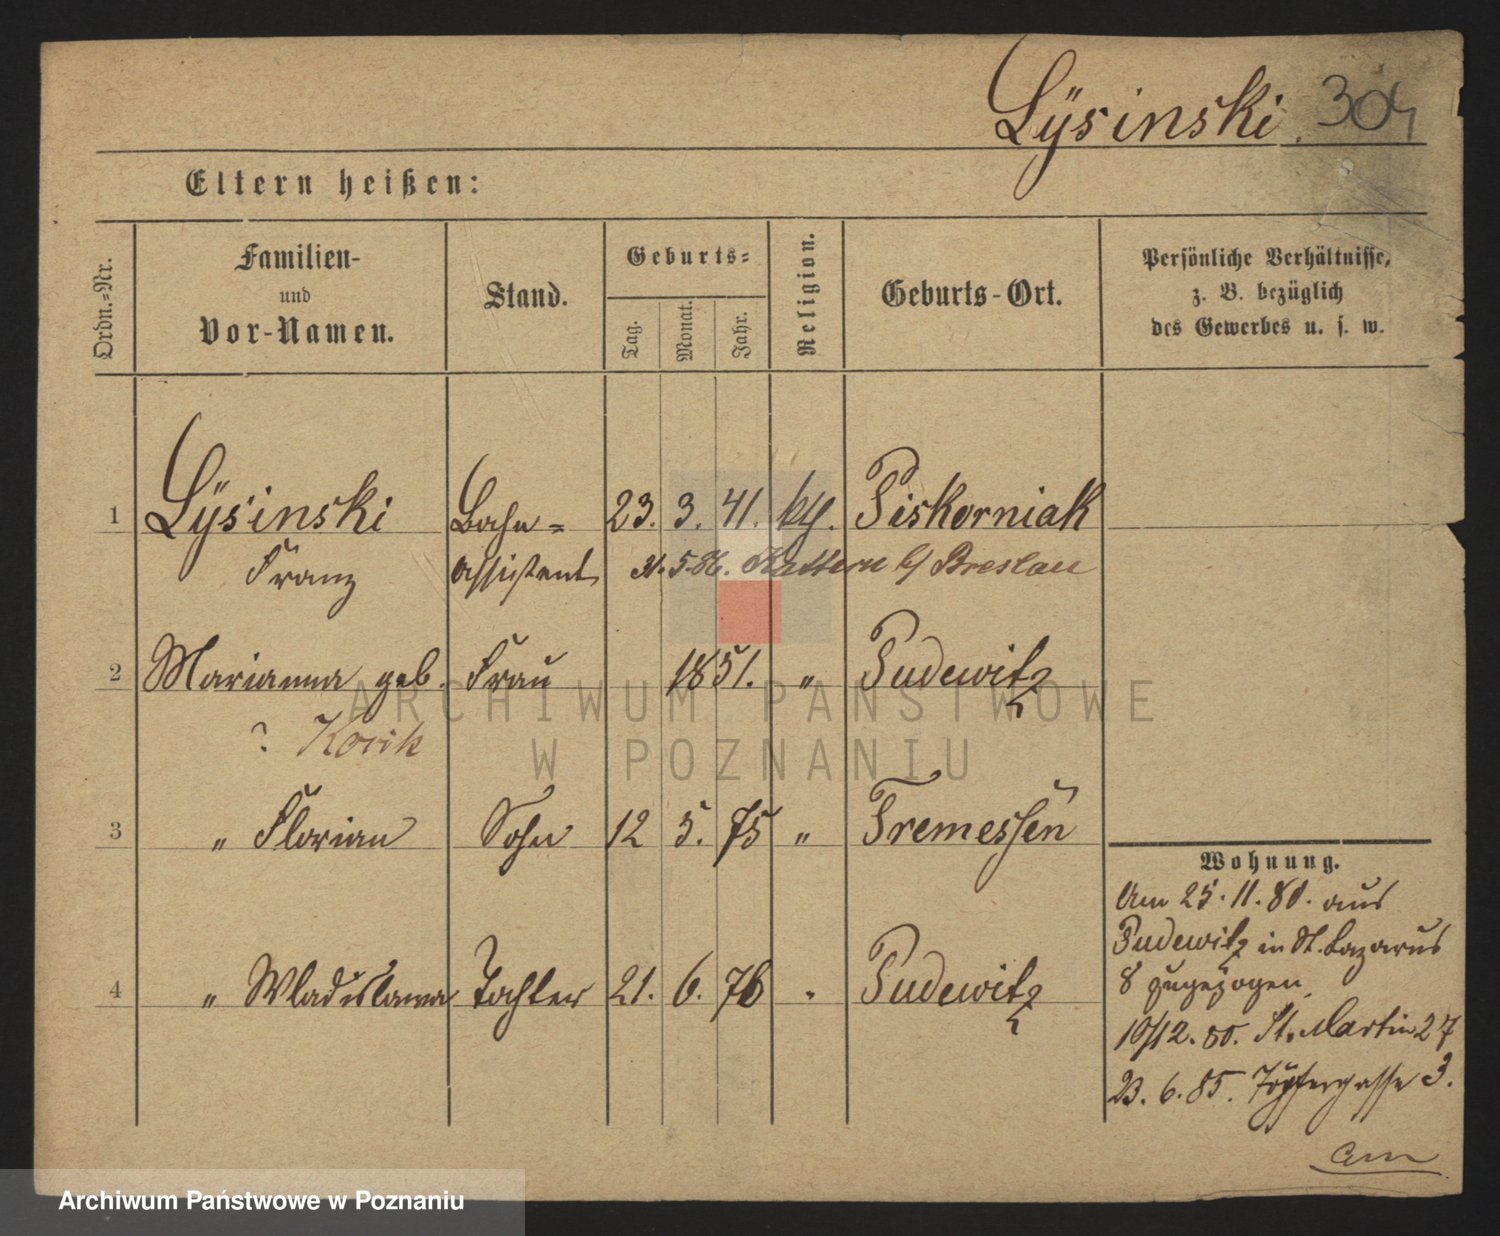 Lÿsinski. 304
Eltern heißen:
Ordn.=Nr.
Familien-
und
Vor-Namen.
Stand.
Geburts=
Tag.
Monat.
Jahr.
Religion.
Geburts-Ort.
Persönliche Verhältnisse,
z. B. bezüglich
des Gewerbes u. s. w.
1 Lÿsinski Bahn= 23. 3. 41. kth. Piskorniak
Franz assistent 31. 5. 86. Kattern b/ Breslau
2 Marianna geb. Frau 1851. " Pudewitz
? Kocik
3 " Florian Sohn 12 5. 75 " Tremessen
4 " Wladislawa Tochter 21. 6. 76 " Pudewitz
Wohnung.
Am 25. 11. 80. aus
Pudewitz in St. Lazarus
8 zugezogen.
10/12. 80. St. Martin 27
23. 6. 85. Töpfergasse 3.
ARCHIWUM PAŃSTWOWE
W POZNANIU
Archiwum Państwowe w Poznaniu